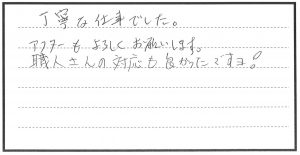 丁寧な仕事でした。
アフターもよろしくお願いします。
職人さんの対応も良かったですヨ!